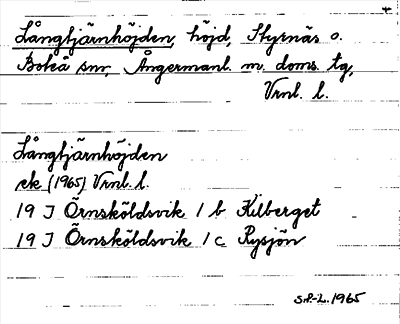 Långtjärnhöjden, höjd, Styrnäs o.
Boteå snr, Ångermanl. m. doms. tg,
Vrnl. l.
Långtjärnhöjden
ek (1965) Vrnl. l.
19 J Örnsköldsvik 1 b Kilberget
19 J Örnsköldsvik 1 c Rysjön
S.P.-L. 1965